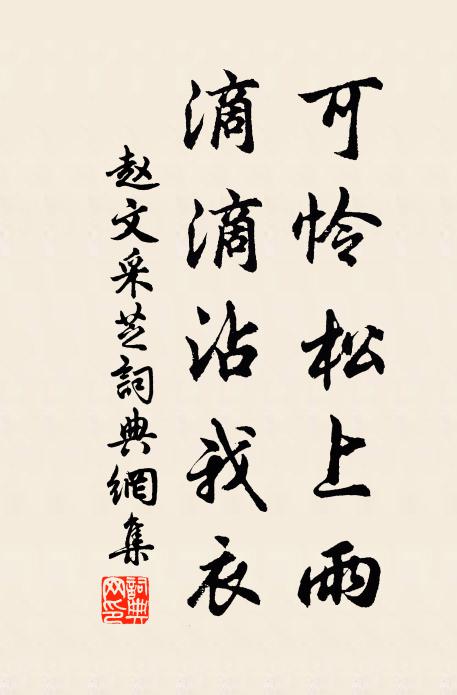 可怜松上雨
滴滴沾我衣
赵文采芝詞典網集
詞典网印